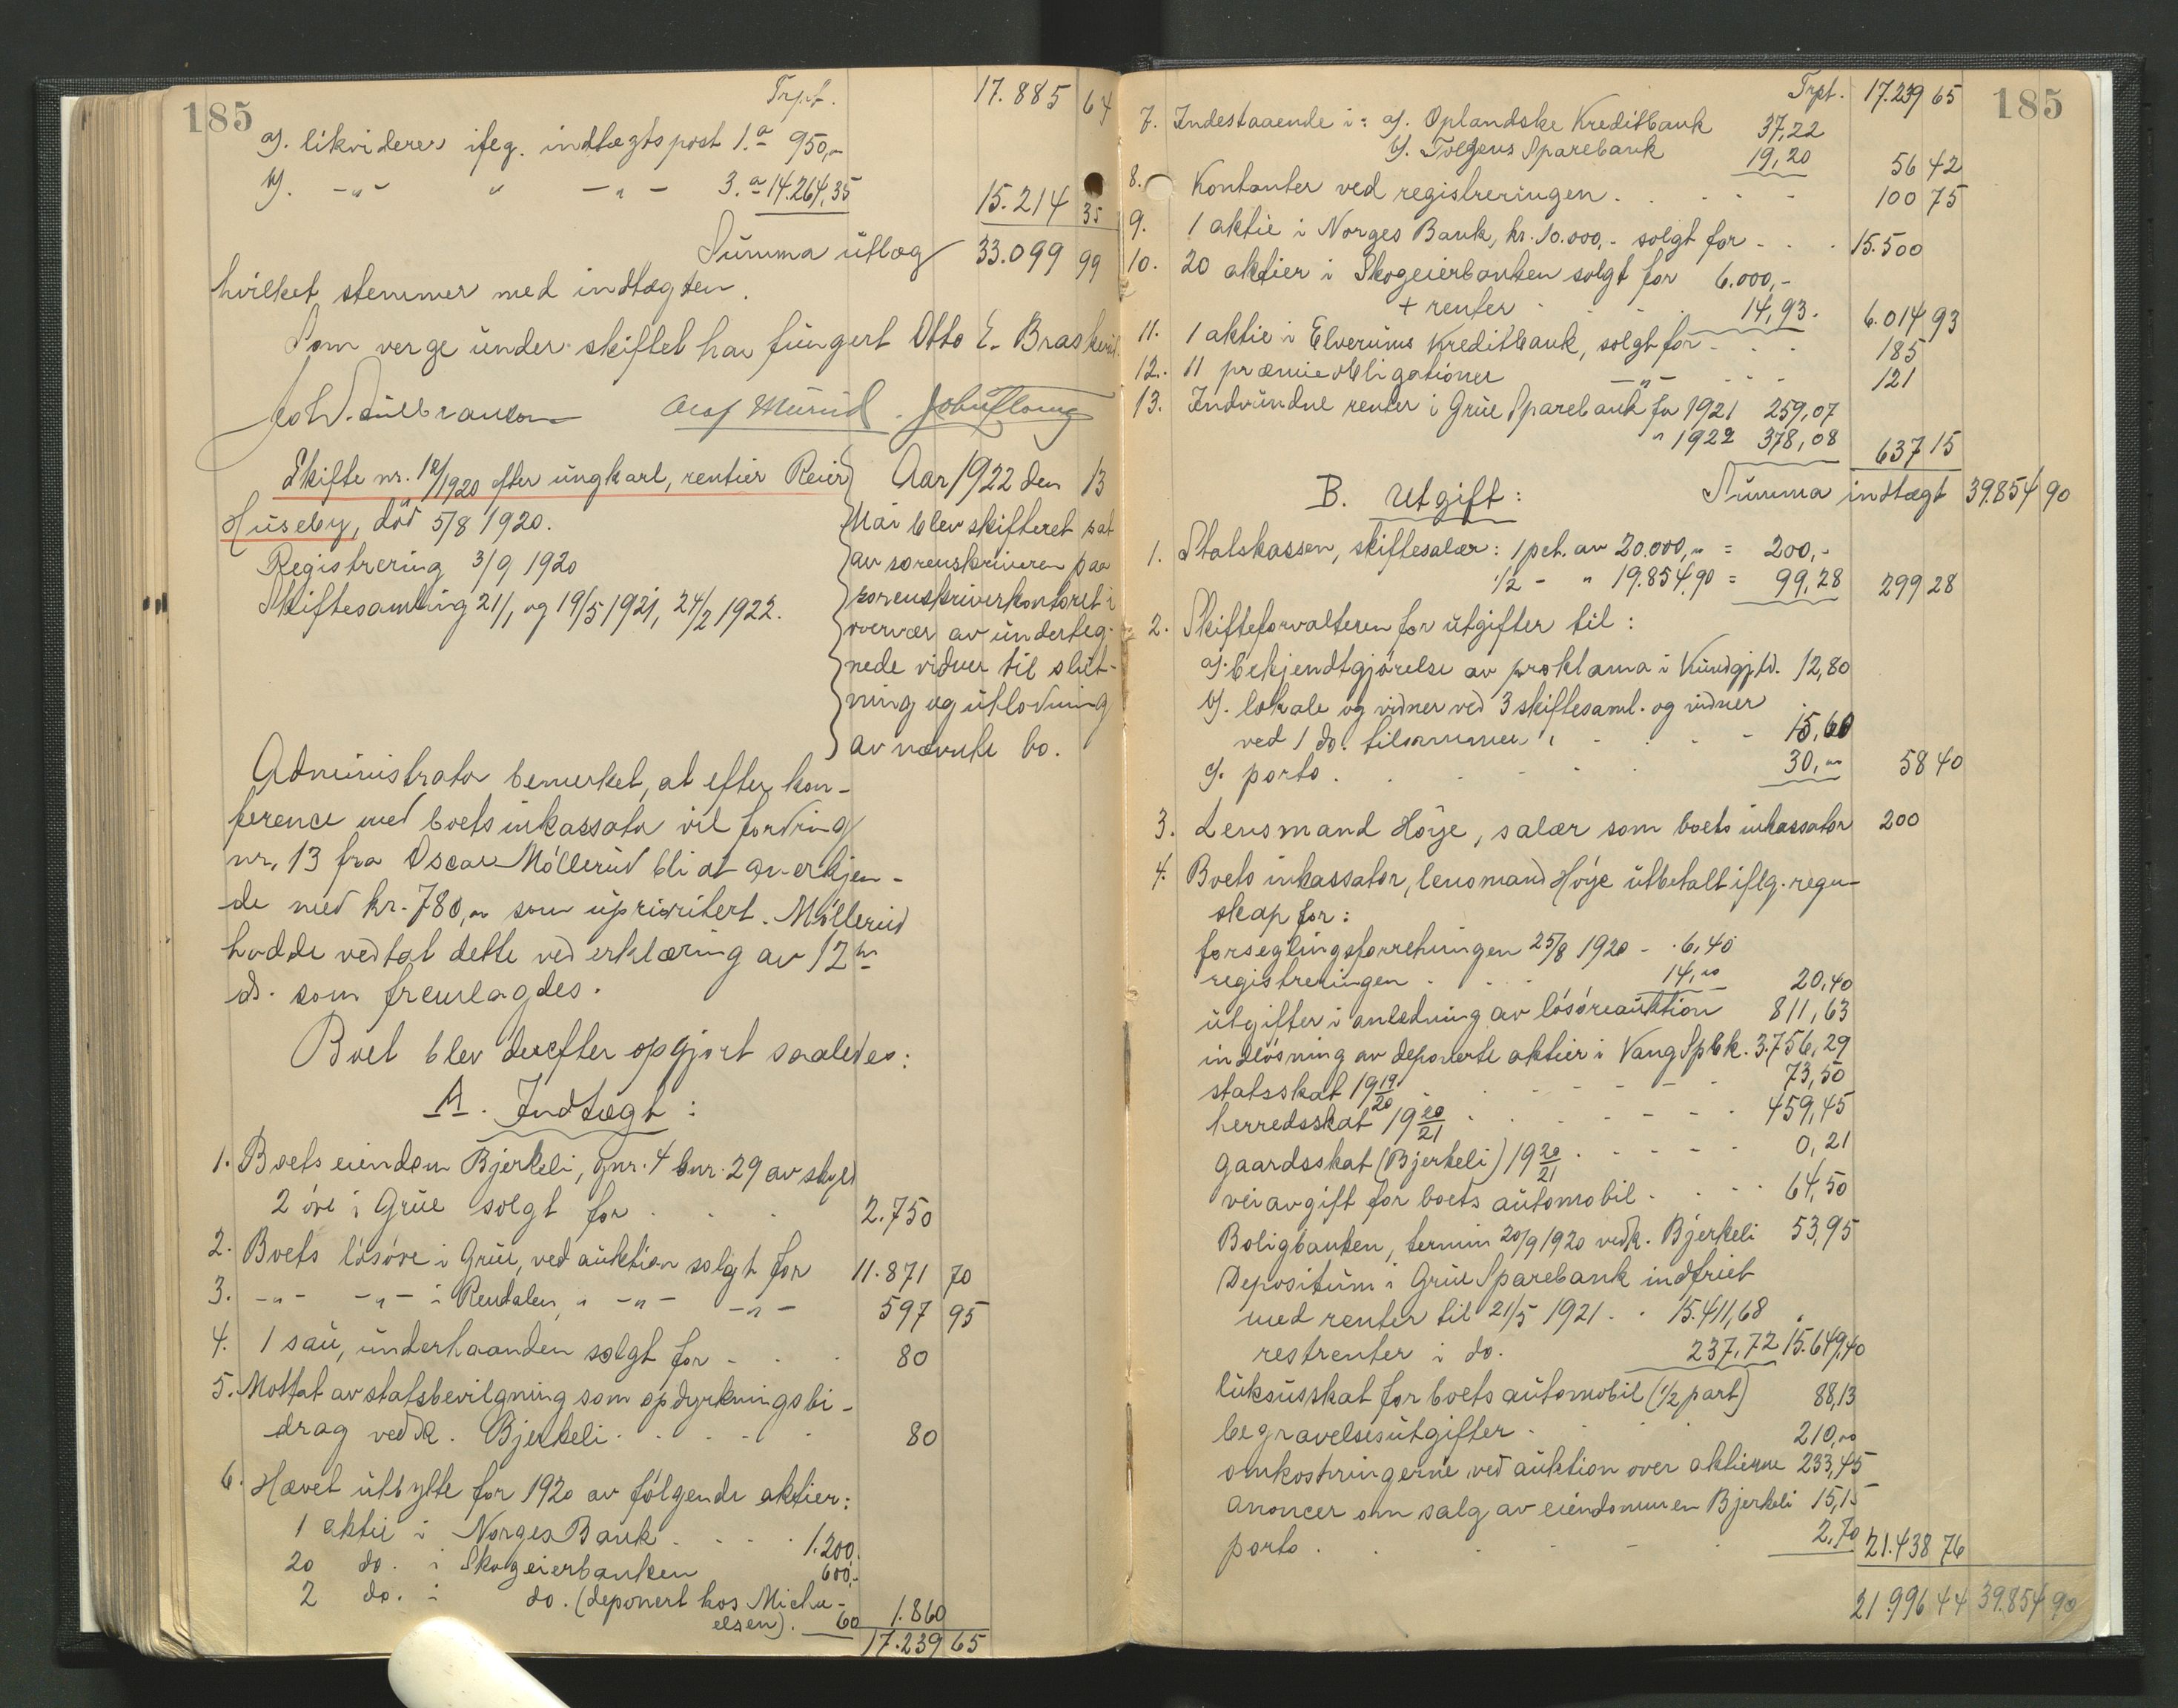 185
Trpt. 17.885 64
a). likviderer ifeg. indtægtspost 1.a 950,-
b). -"- " -"- 3.a 14.264,35 15.214 35
Summa utlæg 33.099 99
hvilket stemmer med indtægten.
Som verge under skiftet har fungert Otto E. Braskerud.
Olaf Mürud.
Skifte nr. 12/1920 efter ungkarl, rentier Reier
Huseby, død 5/8 1920.
Registrering 3/9 1920
Skiftesamling 21/1 og 19/5 1921, 24/2 1922.
Aar 1922 den 13
Mai blev skifteret sat
av sorenskriveren paa
sorenskriverkontoret i
overvær av underteg-
nede vidner til slut-
ning og utlodning
av nævnte bo.
Administrator bemerket, at efter kon-
ference med boets inkassator vil fordring
nr. 13 fra Oscar Möllerud bli at anerkjen-
de med kr. 780,00 som uprioritert. Möllerud
hadde vedtat dette ved erklæring av 12te
ds. som fremlagdes.
Boet blev derefter opgjort saaledes:
A. Indtægt:
1. Boets eiendom Bjerkeli, gnr. 4 bnr. 29 av skyld
2 öre i Grue solgt for . . . 2.750
2. Boets lösöre i Grue, ved auktion solgt for 11.871 70
3. -"- -"- i Rendalen, " -"- -"- 597 95
4. 1 sau, underhaanden solgt for - . . 80
5. Mottat av statsbevilgning som opdyrkningsbi-
drag vedk. Bjerkeli . . . . . 80
6. Hævet utbytte for 1920 av følgende aktier:
1 aktie i Norges Bank . . . . 1.200.
20 do. i Skogeierbanken 600,-
2 do. i do. (deponert hos Micha-
elsen). 60 1.860
17.239 65
185
Trpt. 17.239 65
7. Indestaaende i: a). Oplandske Kreditbank 37,22
b). Tolgens Sparebank 19,20 56 42
8. Kontanter ved registreringen . . . . - 100 75
9. 1 aktie i Norges Bank, kr. 10.000,- solgt for - . . 15.500
10. 20 aktier i Skogeierbanken solgt for 6.000,-
+ renter . . . 14,93. 6.014 93
11. 1 aktie i Elverums Kreditbank, solgt for . . . 185
12. 11 præmieobligationer -"- . . . 121
13. Indvundne renter i Grue Sparebank for 1921 259,07
" 1922 378,08 637 15
Summa indtægt 39.854 90
B. Utgift:
1. Statskassen, skiftesalær: 1 pct. av 20.000,00 = 200,-
1/2 - " 19.854,90 = 99,28 299 28
2. Skifteforvalteren for utgifter til:
a). bekjendtgjörelse av proklama i Kundgj.td. 12,80
b). lokale og vidner ved 3 skiftesaml. og vidner
ved 1 do. tilsammen . . . . - 15,60
c). porto . . . . . . 30,00 58 40
3. Lensmand Höye, salær som boets inkassator 200
4. Boets inkassator, lensmand Höye utbetalt iflg. regn-
skap for:
forseglingsforretningen 25/8 1920 - . 6,40
registreringen . . . 14,00 20,40
utgifter i anledning av lösöreauktion 811,63
indlösning av deponerte aktier i Vang Spbk. 3.756,29
statsskat 1919/20 . . . . . 73,50
herredsskat 1920/21 . . . . . 459,45
gaardsskat (Bjerkeli) 1920/21 . . . . 0,21
veiavgift for boets automobil . . . . 64,50
Boligbanken, termin 20/9 1920 vedk. Bjerkeli 53,95
Depositum i Grue Sparebank indfriet
med renter til 21/5 1921 . . 15.411,68
restrenter i do. 237,72 15.649,40
luksusskat for boets automobil (1/2 part) 88,13
begravelsesutgifter . . . 210,00
omkostningerne ved auktion over aktierne 233,45
anoncer om salg av eiendommen Bjerkeli 15,15
porto . . . . . 2,70 21.438 76
21.996 44 39.854 90